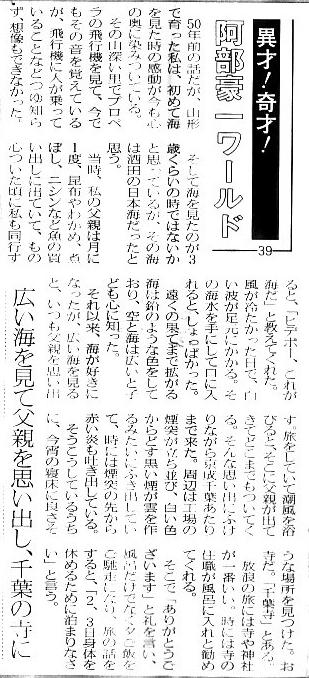 異才！奇才！
阿部豪一ワールド
39
50年前の話だが、山形
で育った私は、初めて海
を見た時の感動が今も心
の奥に染みついている。
その山深い里でプロペ
ラの飛行機を見て、今で
もその音を覚えている
が、飛行機に人が乗って
いることなどつゆ知ら
ず想像もできなかった。
そして海を見たのが3
歳くらいの時ではないか
と思っているが、その海
は酒田の日本海だったと
思う。
当時、私の父親は月に
1度、昆布やわかめ、煮
ぼし、ニシンなど魚の買
い出しに出ていて、もの
心ついた頃に私も同行す
ると、「ヒデボー、これが
海だ」と教えてくれた。
風が冷たかった日で、白
い波が足元にかかる。そ
の海水を手にして口に入
れると、しょっぱかった。
遠くの奥でまで拡がる
海は鉛のような色をして
おり、空と海は広いと子
ども心に知った。
それ以来、海が好きに
なったが、広い海を見る
と、いつも父親を思い出
す。旅をしていて潮風を浴
びると、そこに父親が出て
きてどこまでもついてく
る。そんな思い出にふけ
りながら京成千葉あたり
まで来た。周辺は工場の
煙突が立ち並び、白い色
からどす黒い煙が雲を作
るみたいにふき出してい
て、時には煙突の先から
赤い炎も吐き出している。
そうこうしているうち
に、今宵の寝床に良さそ
うな場所を見つけた。お
寺だ。「千葉寺」とある。
放浪の旅には寺や神社
が一番いい。時には寺の
住職が風呂に入れと勧め
てくれる。
そこで「ありがとうご
ざいます」と礼を言い、
風呂だけでなく夕ご飯を
ご馳走になり、旅の話を
すると、「2、3日身体を
休めるために泊まりなさ
い」と言う。
広い海を見て父親を思い出し、千葉の寺に